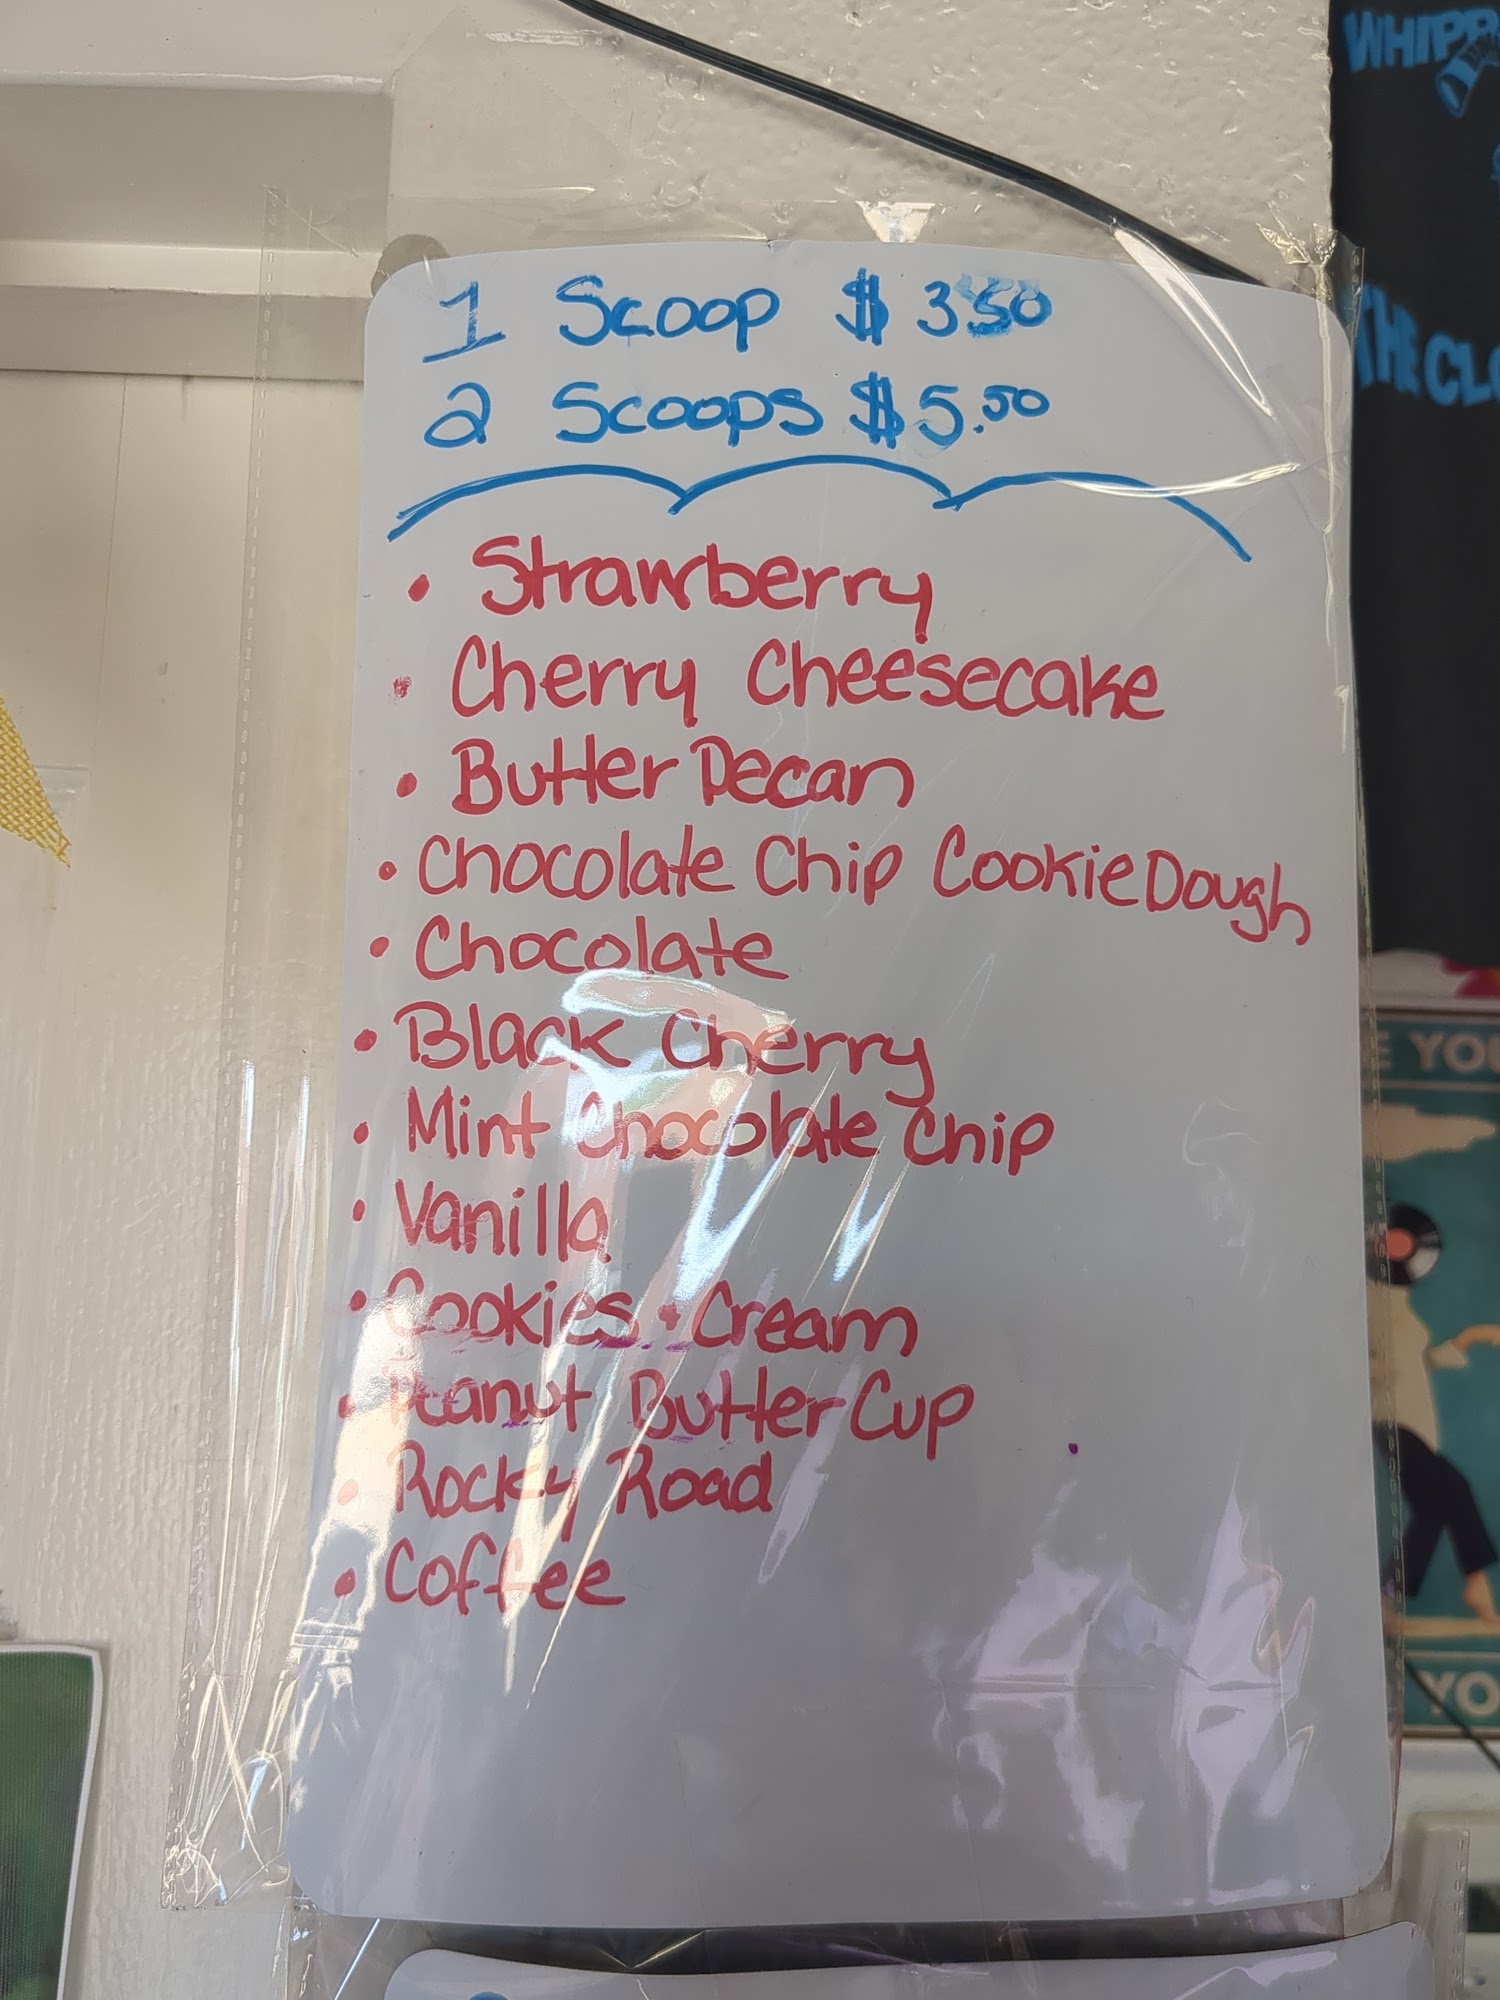 1 Scoop $ 3.50
2 Scoops $5.50
• Strawberry
• Cherry Cheesecake
• Butter Pecan
• Chocolate Chip Cookie Dough
• Chocolate
• Black Cherry
• Mint Chocolate Chip
• Vanilla
• Cookies + Cream
• Peanut Butter Cup
• Rocky Road
• Coffee
THE
YOU